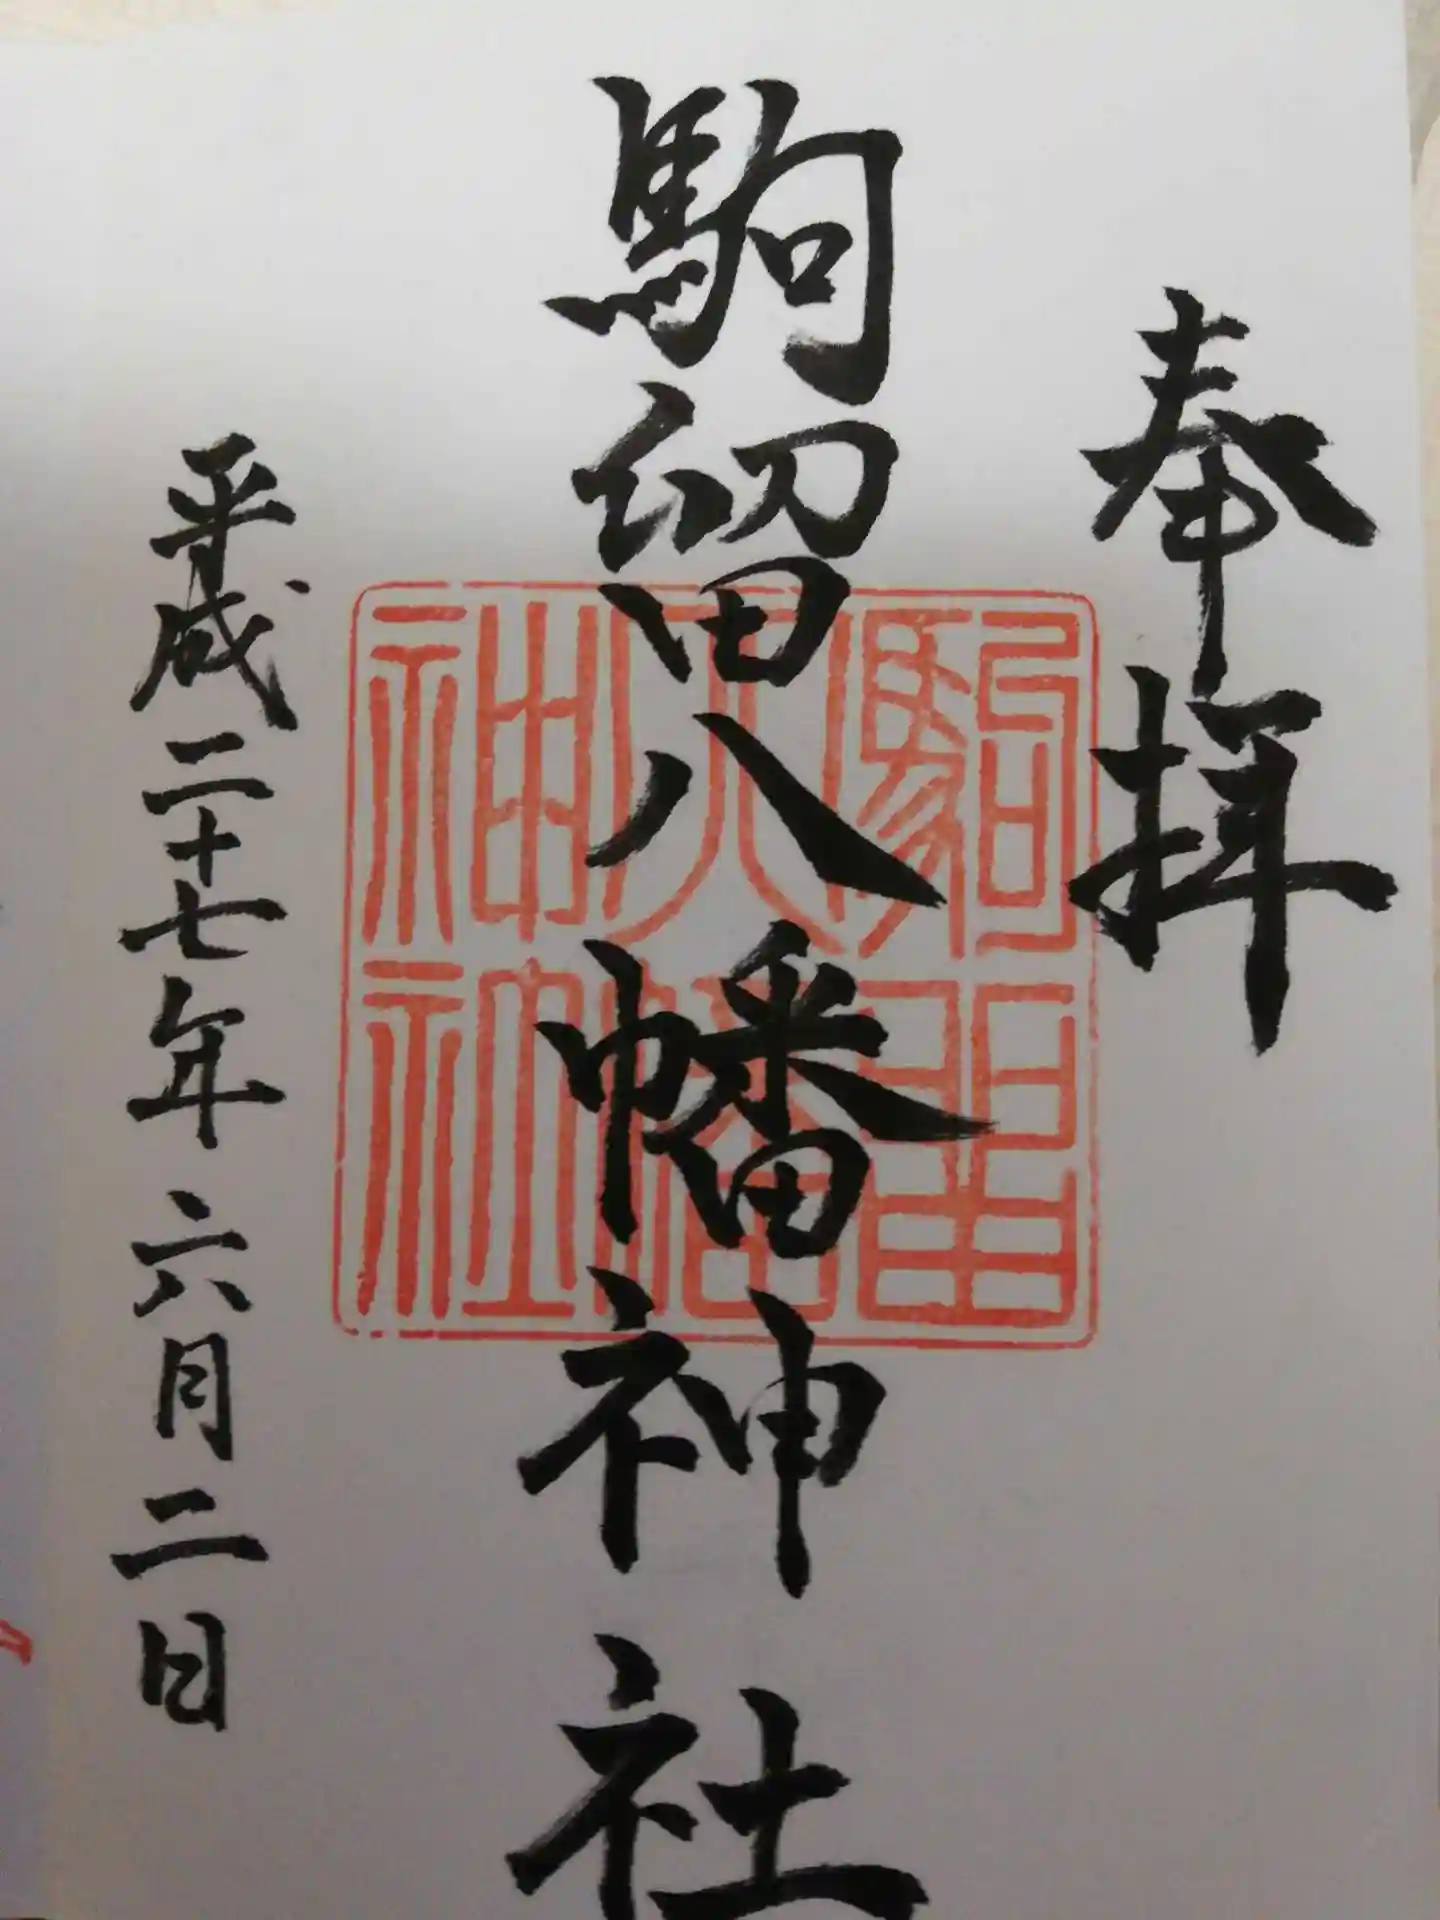 奉拝
駒留八幡神社
駒留
八幡
神社
平成二十七年六月二日